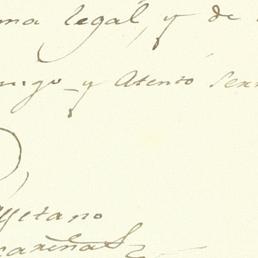 ma legál, y de
migo y Atento Ser
yetano
careñas